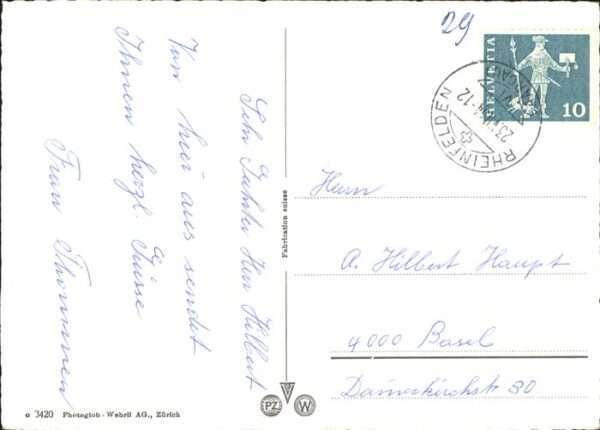 29
HELVETIA
10
RHEINFELDEN
23. -12
Sehr Geehrter Herr Hilbert
Von hier aus sendet
Ihnen herzl. Grüsse
Frau Thommen
Fabrication suisse
Herrn
A. Hilbert Haupt
4000 Basel
30
o 3420 Photoglob-Wehrli AG., Zürich
PZ W